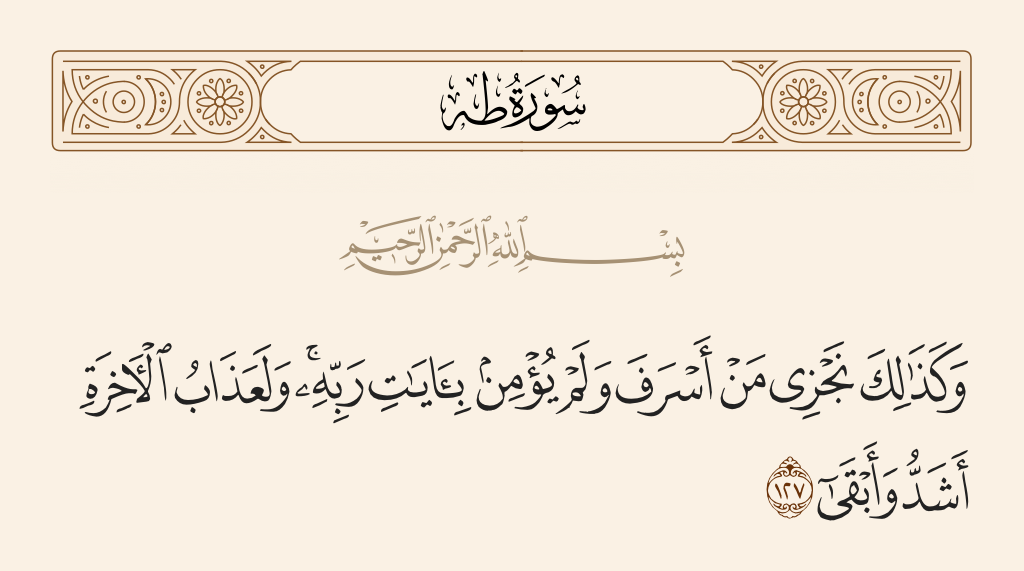 سُورَةُ طه
بِسْمِ ٱللَّهِ ٱلرَّحْمَٰنِ ٱلرَّحِيمِ
وَكَذَٰلِكَ نَجْزِى مَنْ أَسْرَفَ وَلَمْ يُؤْمِنۢ بِـَٔايَـٰتِ رَبِّهِۦ ۚ وَلَعَذَابُ ٱلْـَٔاخِرَةِ
أَشَدُّ وَأَبْقَىٰٓ ١٢٧